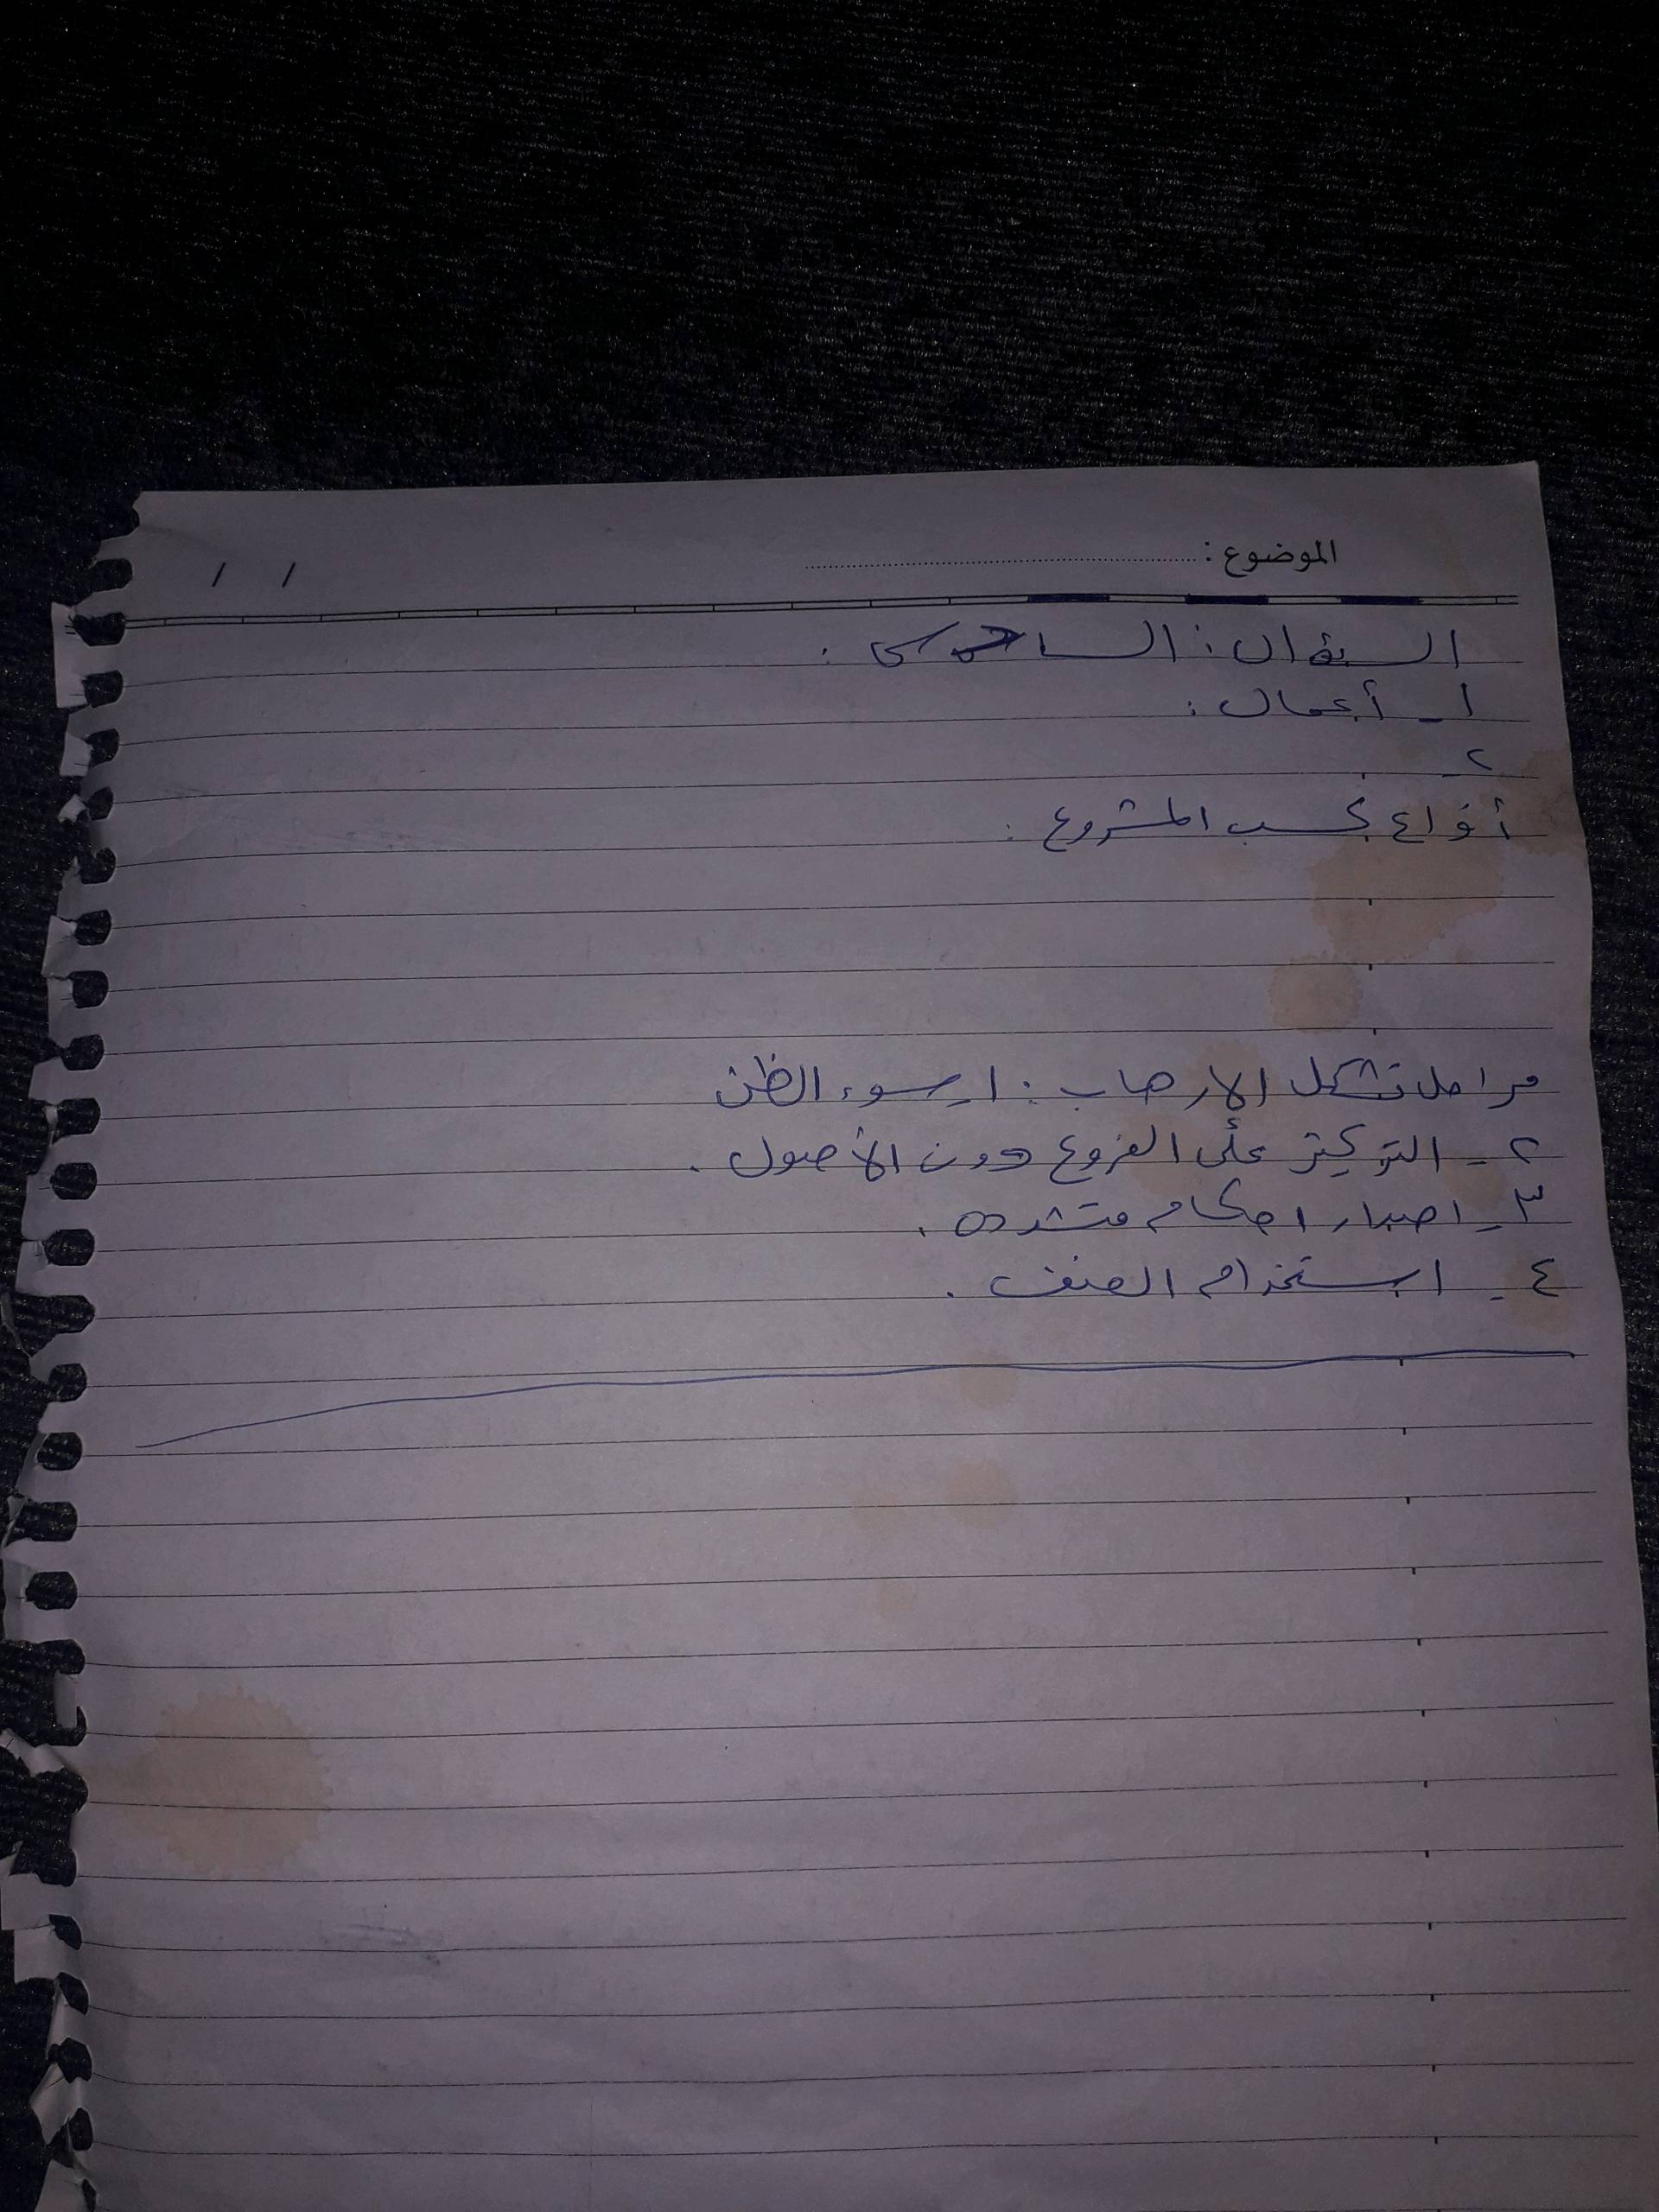 الموضوع :
/ /
السؤال : السادس :
١ ـ أعمال :
٢ ـ
أنواع بحسب المشروع :
مراحل تشكل الارهاب : ١ـ سوء الظن
٢ ـ التركيز على الفروع دون الأصول .
٣ ـ اصدار احكام متشدده .
٤ ـ استخدام العنف .